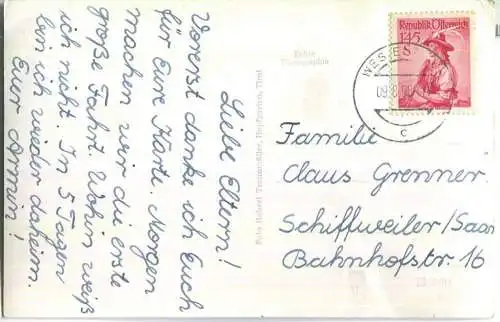 Liebe Eltern!
Vorerst danke ich Euch
für Eure Karte. Morgen
machen wir die erste
große Fahrt. Wohin weiß
ich nicht. In 5 Tagen
bin ich wieder daheim.
Euer Armin!
Echte
Photographie
Foto Hubert Tennenmüller, Hopfgarten, Tirol
Republik Österreich
1.45
WES
09.8.
c
Familie
Claus Grenner
Schiffweiler/Saar
Bahnhofstr. 16